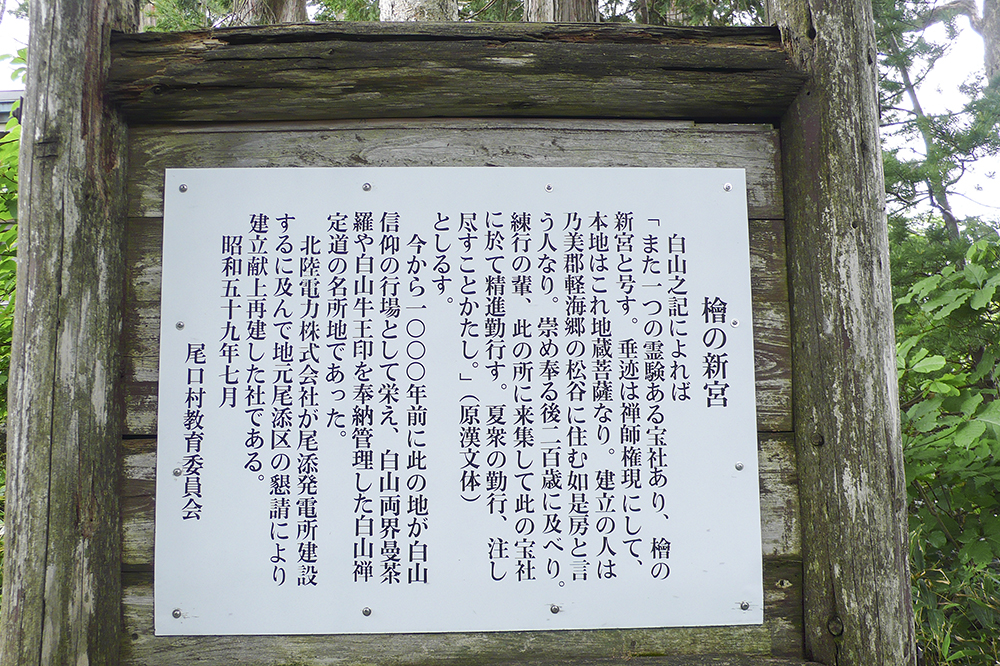 檜の新宮
白山之記によれば
「また一つの霊験ある宝社あり、檜の
新宮と号す。垂迹は禅師権現にして、
本地はこれ地蔵菩薩なり。建立の人は
乃美郡軽海郷の松谷に住む如是房と言
う人なり。崇め奉る後二百歳に及べり。
練行の輩、此の所に来集して此の宝社
に於て精進勤行す。夏衆の勤行、注し
尽すことかたし。」(原漢文体)
としるす。
今から一〇〇〇年前に此の地が白山
信仰の行場として栄え、白山両界曼荼
羅や白山牛王印を奉納管理した白山禅
定道の名所地であった。
北陸電力株式会社が尾添発電所建設
するに及んで地元尾添区の懇請により
建立献上再建した社である。
昭和五十九年七月
尾口村教育委員会